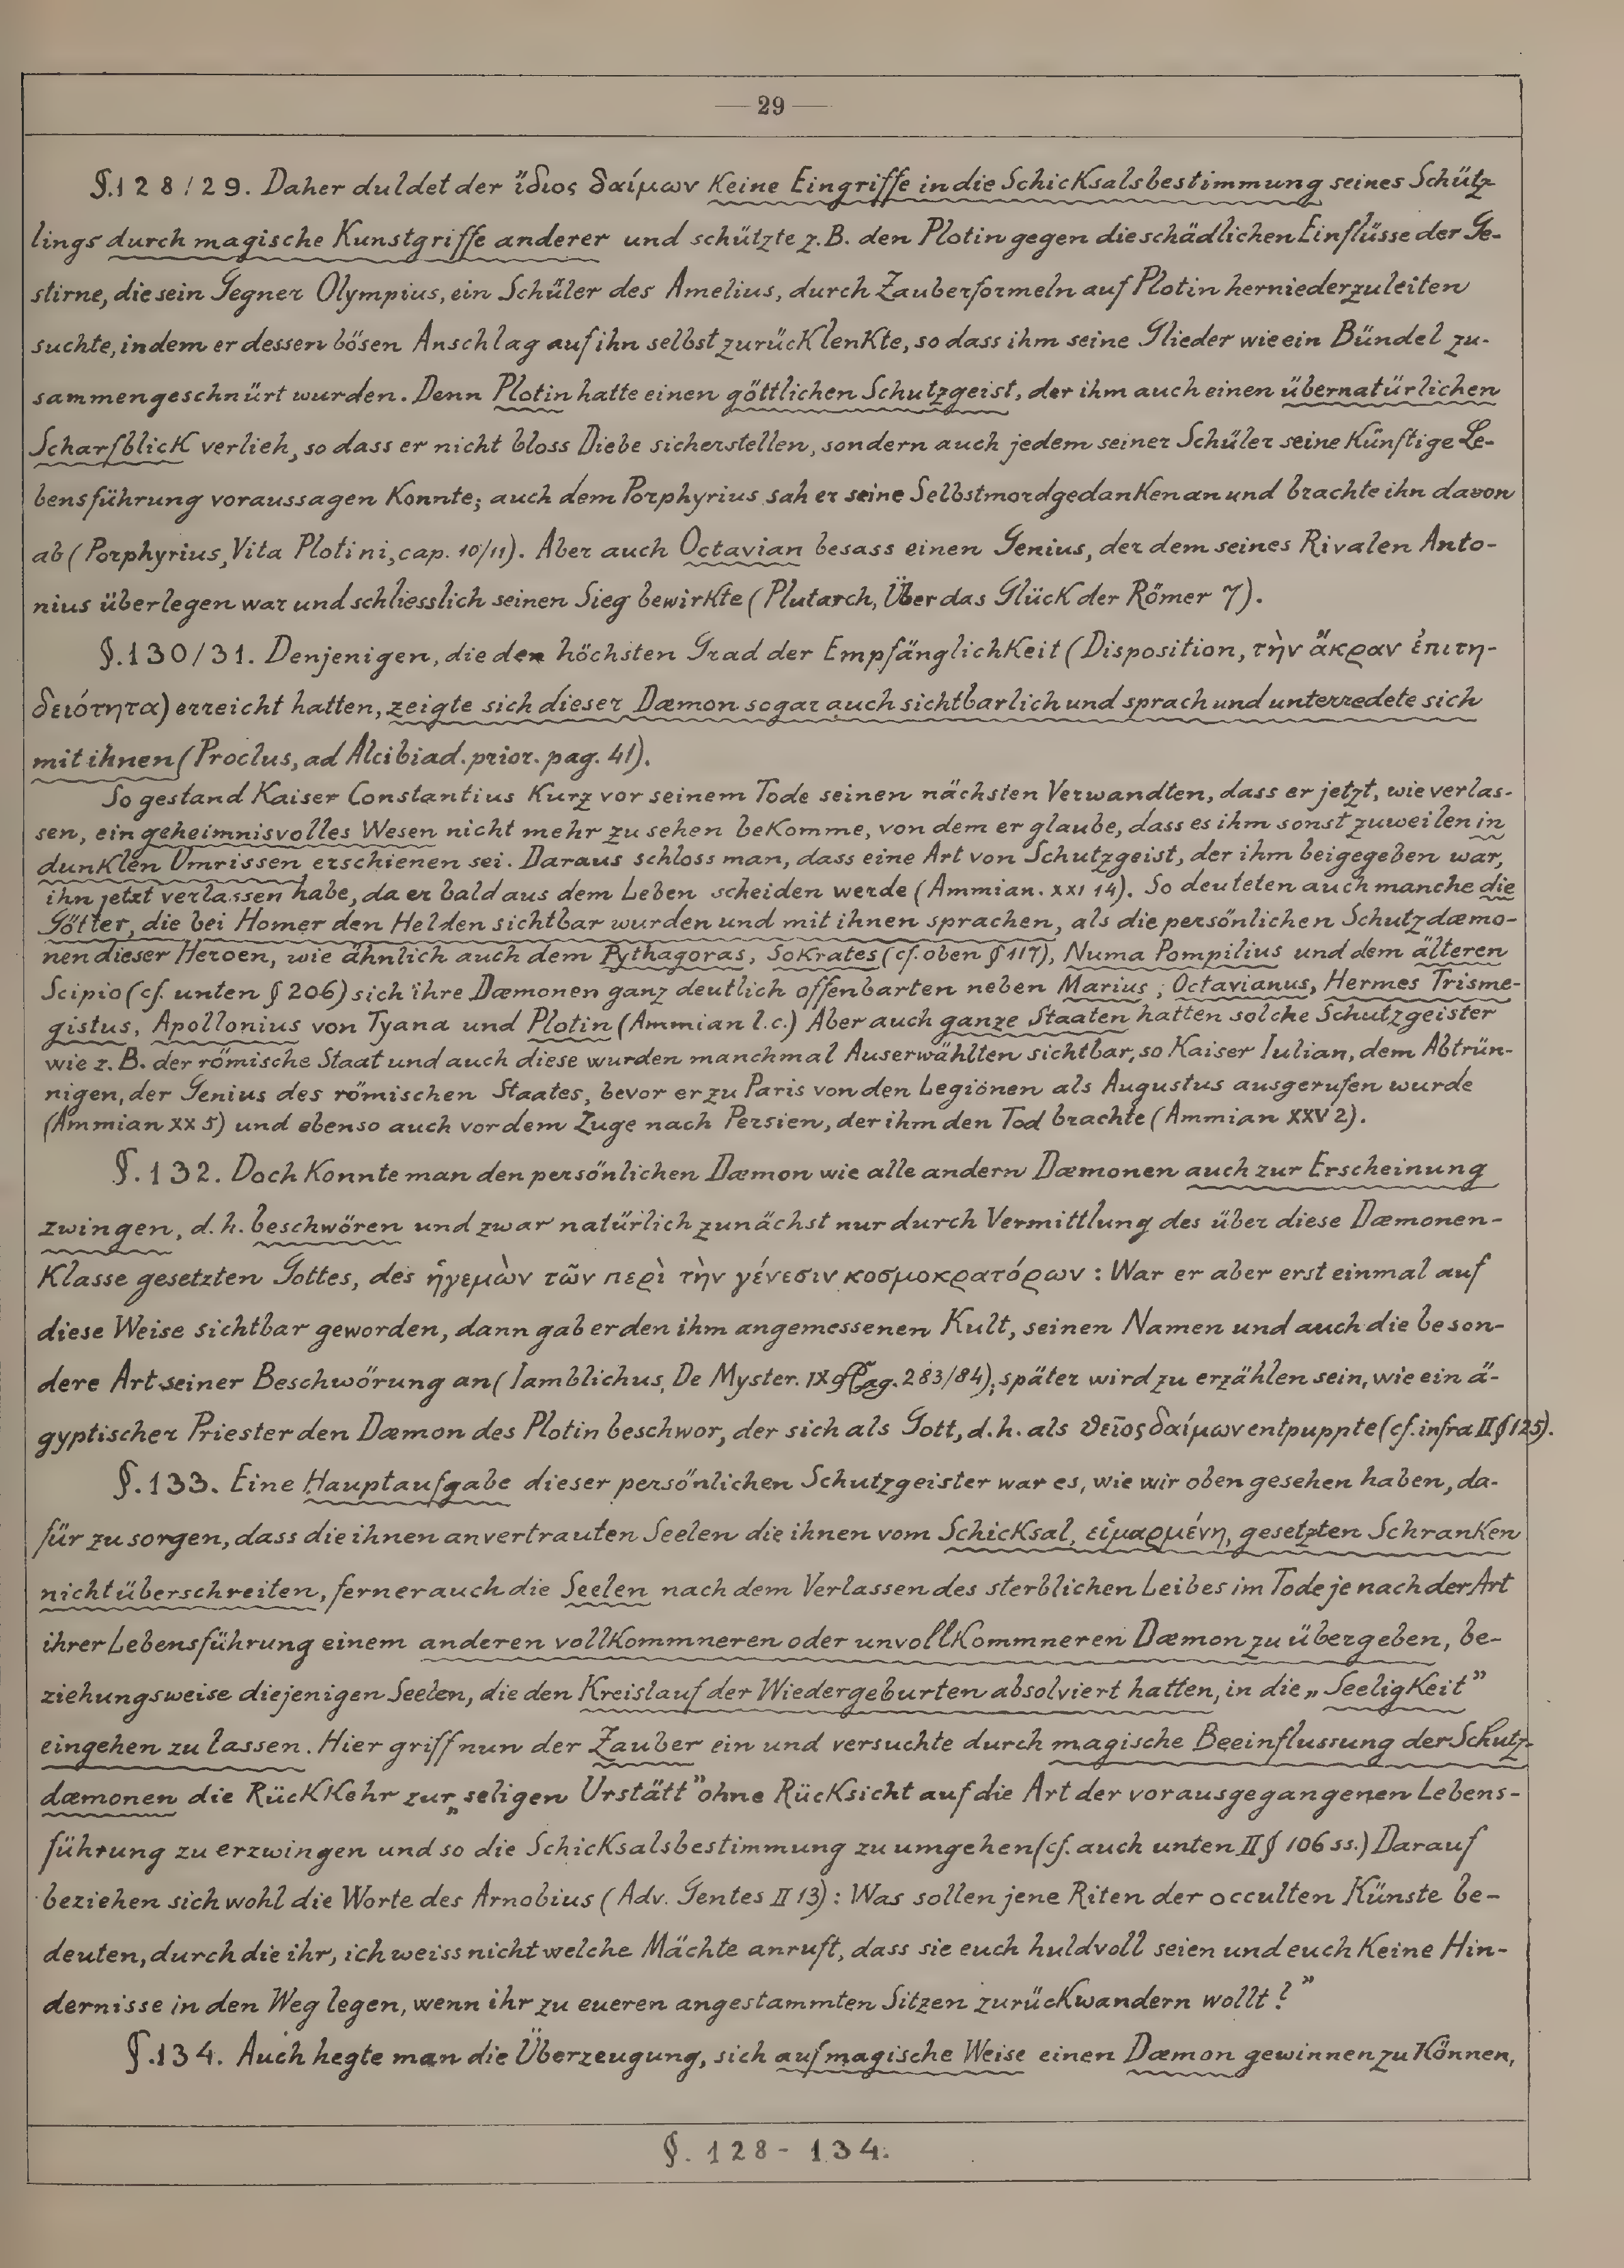 — 29 —
§. 128/29. Daher duldet der ἴδιος δαίμων keine Eingriffe in die Schicksalsbestimmung seines Schütz-
lings durch magische Kunstgriffe anderer und schützte z. B. den Plotin gegen die schädlichen Einflüsse der Ge-
stirne, die sein Gegner Olympius, ein Schüler des Amelius, durch Zauberformeln auf Plotin herniederzuleiten
suchte, indem er dessen bösen Anschlag auf ihn selbst zurücklenkte, so dass ihm seine Glieder wie ein Bündel zu-
sammengeschnürt wurden. Denn Plotin hatte einen göttlichen Schutzgeist, der ihm auch einen übernatürlichen
Scharfblick verlieh, so dass er nicht bloss Diebe sicherstellen, sondern auch jedem seiner Schüler seine künftige Le-
bensführung voraussagen konnte; auch dem Porphyrius sah er seine Selbstmordgedanken an und brachte ihn davon
ab (Porphyrius, Vita Plotini, cap. 10/11). Aber auch Octavian besass einen Genius, der dem seines Rivalen Anto-
nius überlegen war und schliesslich seinen Sieg bewirkte (Plutarch, Über das Glück der Römer 7).
§. 130/31. Denjenigen, die den höchsten Grad der Empfänglichkeit (Disposition, τὴν ἄκραν ἐπιτη-
δειότητα) erreicht hatten, zeigte sich dieser Dæmon sogar auch sichtbarlich und sprach und unterredete sich
mit ihnen (Proclus, ad Alcibiad. prior. pag. 41).
So gestand Kaiser Constantius kurz vor seinem Tode seinen nächsten Verwandten, dass er jetzt, wie verlas-
sen, ein geheimnisvolles Wesen nicht mehr zu sehen bekomme, von dem er glaube, dass es ihm sonst zuweilen in
dunklen Umrissen erschienen sei. Daraus schloss man, dass eine Art von Schutzgeist, der ihm beigegeben war,
ihn jetzt verlassen habe, da er bald aus dem Leben scheiden werde (Ammian. XXI 14). So deuteten auch manche die
Götter, die bei Homer den Helden sichtbar wurden und mit ihnen sprachen, als die persönlichen Schutzdæmo-
nen dieser Heroen, wie ähnlich auch dem Pythagoras, Sokrates (cf. oben § 117), Numa Pompilius und dem älteren
Scipio (cf. unten § 206) sich ihre Dæmonen ganz deutlich offenbarten neben Marius, Octavianus, Hermes Trisme-
gistus, Apollonius von Tyana und Plotin (Ammian l. c.) Aber auch ganze Staaten hatten solche Schutzgeister
wie z. B. der römische Staat und auch diese wurden manchmal Auserwählten sichtbar, so Kaiser Iulian, dem Abtrün-
nigen, der Genius des römischen Staates, bevor er zu Paris von den Legionen als Augustus ausgerufen wurde
(Ammian XX 5) und ebenso auch vor dem Zuge nach Persien, der ihm den Tod brachte (Ammian XXV 2).
§. 132. Doch konnte man den persönlichen Dæmon wie alle andern Dæmonen auch zur Erscheinung
zwingen, d. h. beschwören und zwar natürlich zunächst nur durch Vermittlung des über diese Dæmonen-
klasse gesetzten Gottes, des ἡγεμὼν τῶν περὶ τὴν γένεσιν κοσμοκρατόρων: War er aber erst einmal auf
diese Weise sichtbar geworden, dann gab er den ihm angemessenen Kult, seinen Namen und auch die beson-
dere Art seiner Beschwörung an (Iamblichus, De Myster. IX 9 Pag. 283/84); später wird zu erzählen sein, wie ein ä-
gyptischer Priester den Dæmon des Plotin beschwor, der sich als Gott, d. h. als θεῖος δαίμων entpuppte (cf. infra II § 125).
§. 133. Eine Hauptaufgabe dieser persönlichen Schutzgeister war es, wie wir oben gesehen haben, da-
für zu sorgen, dass die ihnen anvertrauten Seelen die ihnen vom Schicksal, εἱμαρμένη, gesetzten Schranken
nicht überschreiten, ferner auch die Seelen nach dem Verlassen des sterblichen Leibes im Tode je nach der Art
ihrer Lebensführung einem anderen vollkommneren oder unvollkommneren Dæmon zu übergeben, be-
ziehungsweise diejenigen Seelen, die den Kreislauf der Wiedergeburten absolviert hatten, in die „Seeligkeit”
eingehen zu lassen. Hier griff nun der Zauber ein und versuchte durch magische Beeinflussung der Schutz-
dæmonen die Rückkehr zur „seligen Urstätt” ohne Rücksicht auf die Art der vorausgegangenen Lebens-
führung zu erzwingen und so die Schicksalsbestimmung zu umgehen (cf. auch unten II § 106 ss.) Darauf
beziehen sich wohl die Worte des Arnobius (Adv. Gentes II 13): Was sollen jene Riten der occulten Künste be-
deuten, durch die ihr, ich weiss nicht welche Mächte anruft, dass sie euch huldvoll seien und euch keine Hin-
dernisse in den Weg legen, wenn ihr zu eueren angestammten Sitzen zurückwandern wollt?”
§. 134. Auch hegte man die Überzeugung, sich auf magische Weise einen Dæmon gewinnen zu können,
§. 128 - 134.